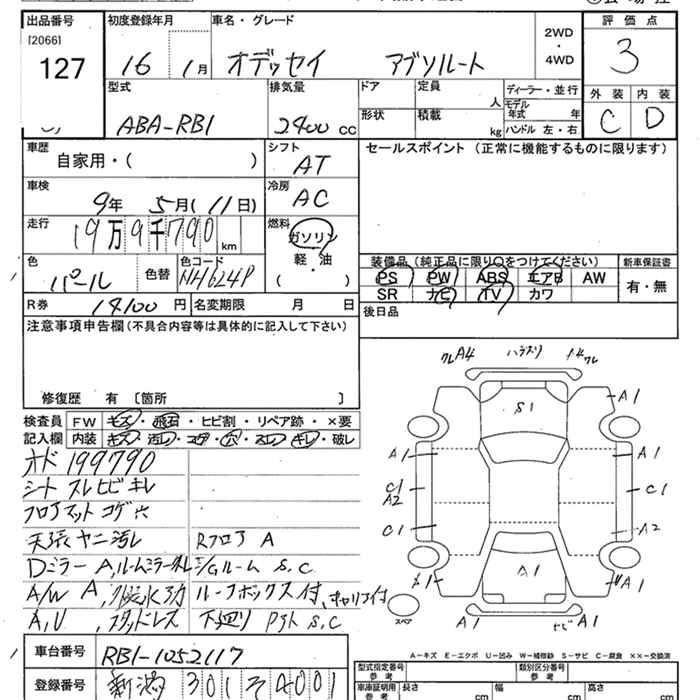 出品番号 初度登録年月 車名・グレード 2WD・4WD 評価点
[2066]
127 16 1月 オデッセイ アブソルート 3
型式 排気量 ドア 定員 人 ディーラー・並行 モデル年式 年 外装 内装
ABA-RB1 2400 cc 形状 積載 kg ハンドル 左・右 C D
車歴 シフト セールスポイント (正常に機能するものに限ります)
自家用・( ) AT
車検 冷房
9年 5月(11日) AC
走行 燃料
19万9千790km ガソリン
軽・油
( )
色 色コード 装備品(純正品に限り○をつけてください) 新車保証書
パール 色替 NH624P PS PW ABS エアB AW 有・無
SR ナビ TV カワ
R券 14100円 名変期限 月 日 後日品
注意事項申告欄(不具合内容等は具体的に記入して下さい)
修復歴 有 〔箇所 〕
検査員 FW キズ・飛石・ヒビ割・リペア跡・×要
記入欄 内装 キズ・汚レ・コゲ・穴・スレ・キレ・破レ
オド 199790
シート スレ ヒビ キレ
フロアマット コゲ 穴
天張 ヤニ 汚レ Rフロア A
Dミラー A,ルームミラー E/Gルーム S,C
A/W A, ルーフボックス付、キャリア付
A,U, スタッドレス 下廻り P31 S,C
A4 A1
S1
A1 A1
C1 A2 C1
C1 A2
A1 A1 A1
スペア
A－キズ E－エクボ U－凹み W－補修跡 S－サビ C－腐食 XX－交換済
車台番号 RB1-1052117
登録番号 新潟 301 そ 4001
型式指定番号 参考 類別区分番号 参考
車庫証明用 参考 長さ cm 幅 cm 高さ cm